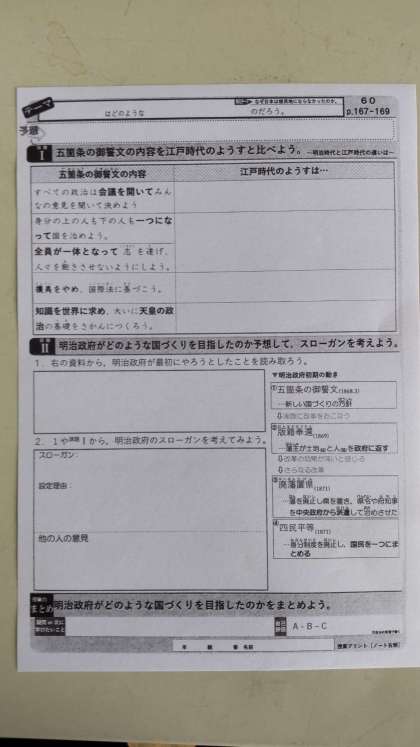 テーマ
はどのような のだろう。
なぜ日本は植民地にならなかったのか。
60
p.167-169
予想
課題 I 五箇条の御誓文の内容を江戸時代のようすと比べよう。 ―明治時代と江戸時代の違いは―
五箇条の御誓文の内容 江戸時代のようすは…
すべての政治は会議を開いてみん
なの意見を聞いて決めよう
身分の上の人も下の人も一つにな
って国を治めよう。
全員が一体となって 志 を遂げ、
人々を飽きさせないようにしよう。
攘夷をやめ、国際法に基づこう。
知識を世界に求め、大いに天皇の政
治の基礎をさかんにつくろう。
課題 II 明治政府がどのような国づくりを目指したのか予想して、スローガンを考えよう。
1．右の資料から、明治政府が最初にやろうとしたことを読み取ろう。
2．1や課題Ⅰから、明治政府のスローガンを考えてみよう。
スローガン：
設定理由：
他の人の意見
▼明治政府初期の動き
①五箇条の御誓文(1868.3)
…新しい国づくりの方針
⇩実際に改革をおこなう
②版籍奉還(1869)
…藩主が土地(版)と人(籍)を政府に返す
⇩改革の効果が浅いと感じる
⇩さらなる改革
③廃藩置県(1871)
…藩を廃止し県を置き、県令や府知事
を中央政府から派遣して治めさせた
④四民平等(1871)
…身分制度を廃止し、国民を一つにま
とめる
授業の
まとめ 明治政府がどのような国づくりを目指したのかをまとめよう。
疑問 or 次に
学びたいこと
自己
評価 A・B・C
年 組 番 名前
授業プリント［ノート右側］